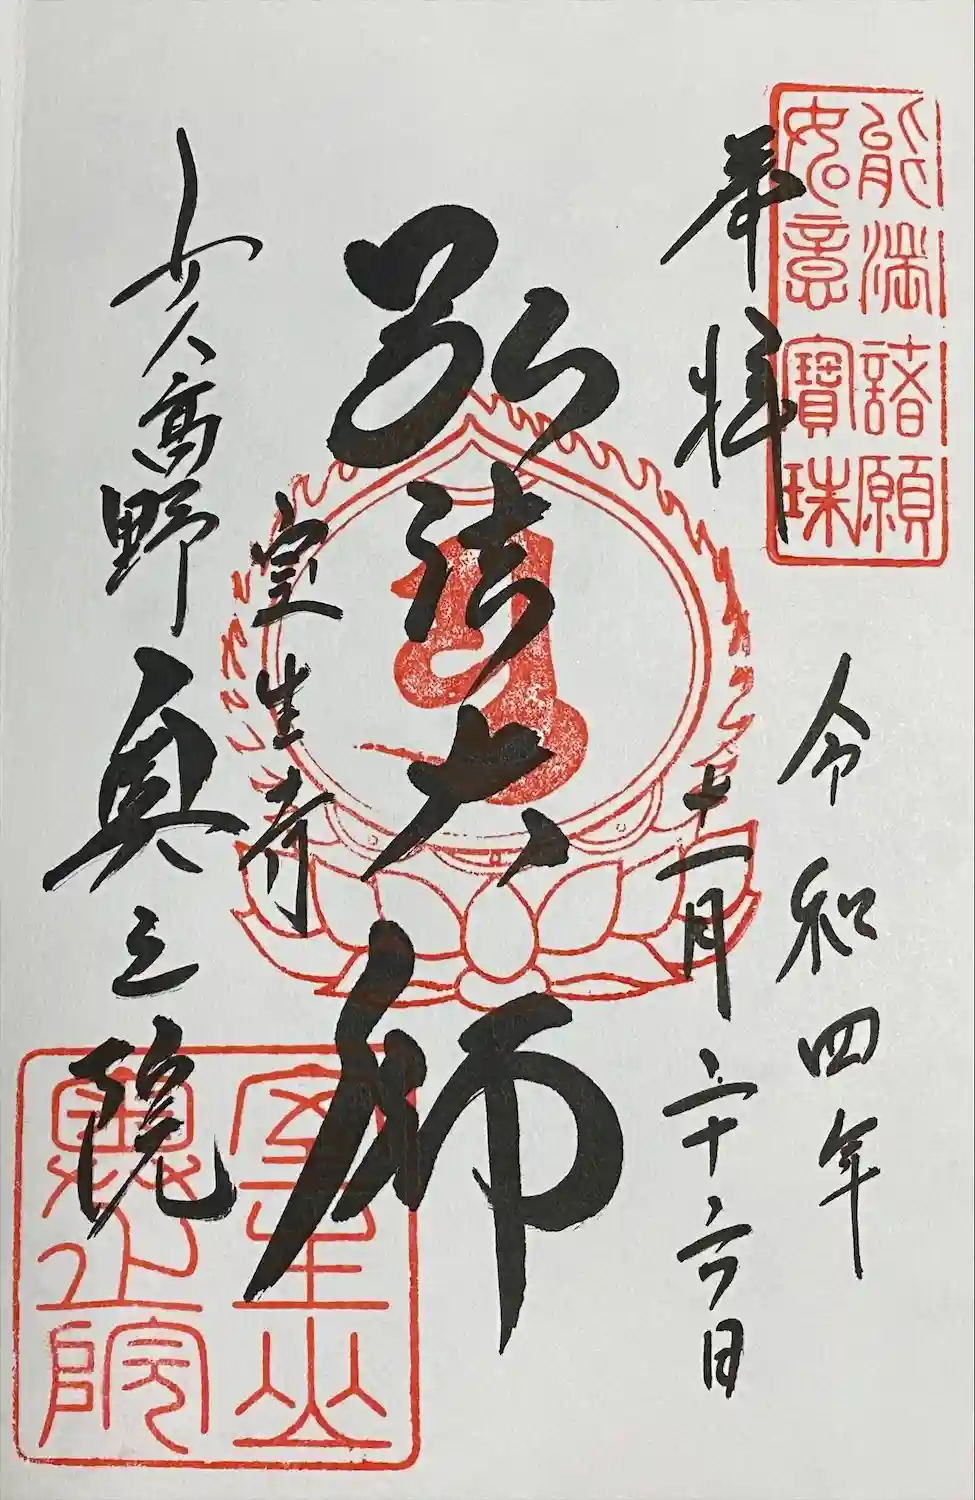 能満諸願
如意寳珠
奉拝
令和四年
十一月二十六日
弘法大師
室生寺
女人高野
奥之院
室生山
奥之院